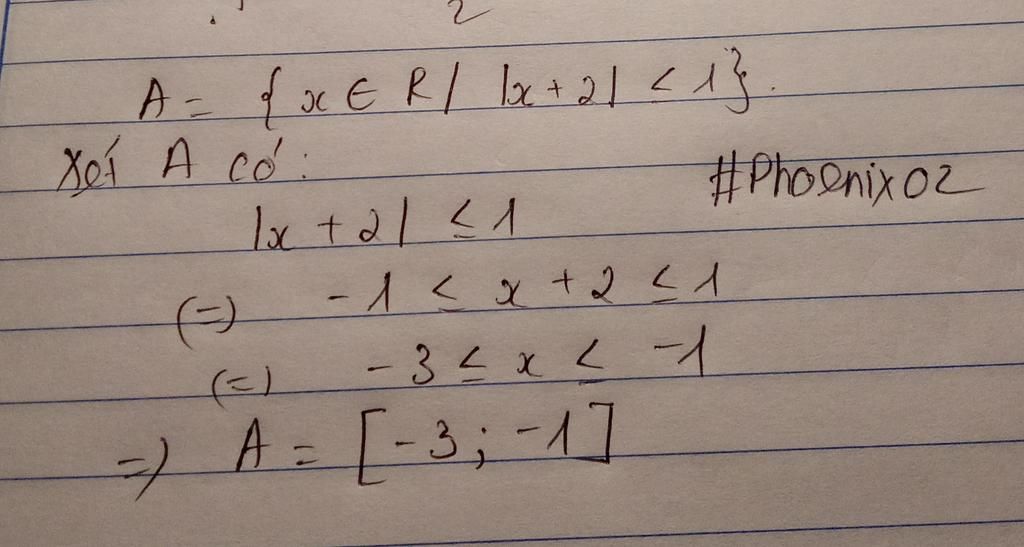 2
A = { x ∈ R / |x + 2| ≤ 1}.
Xét A có:
#Phoenix02
|x + 2| ≤ 1
(=) -1 ≤ x + 2 ≤ 1
(=) -3 ≤ x ≤ -1
=) A = [-3; -1]